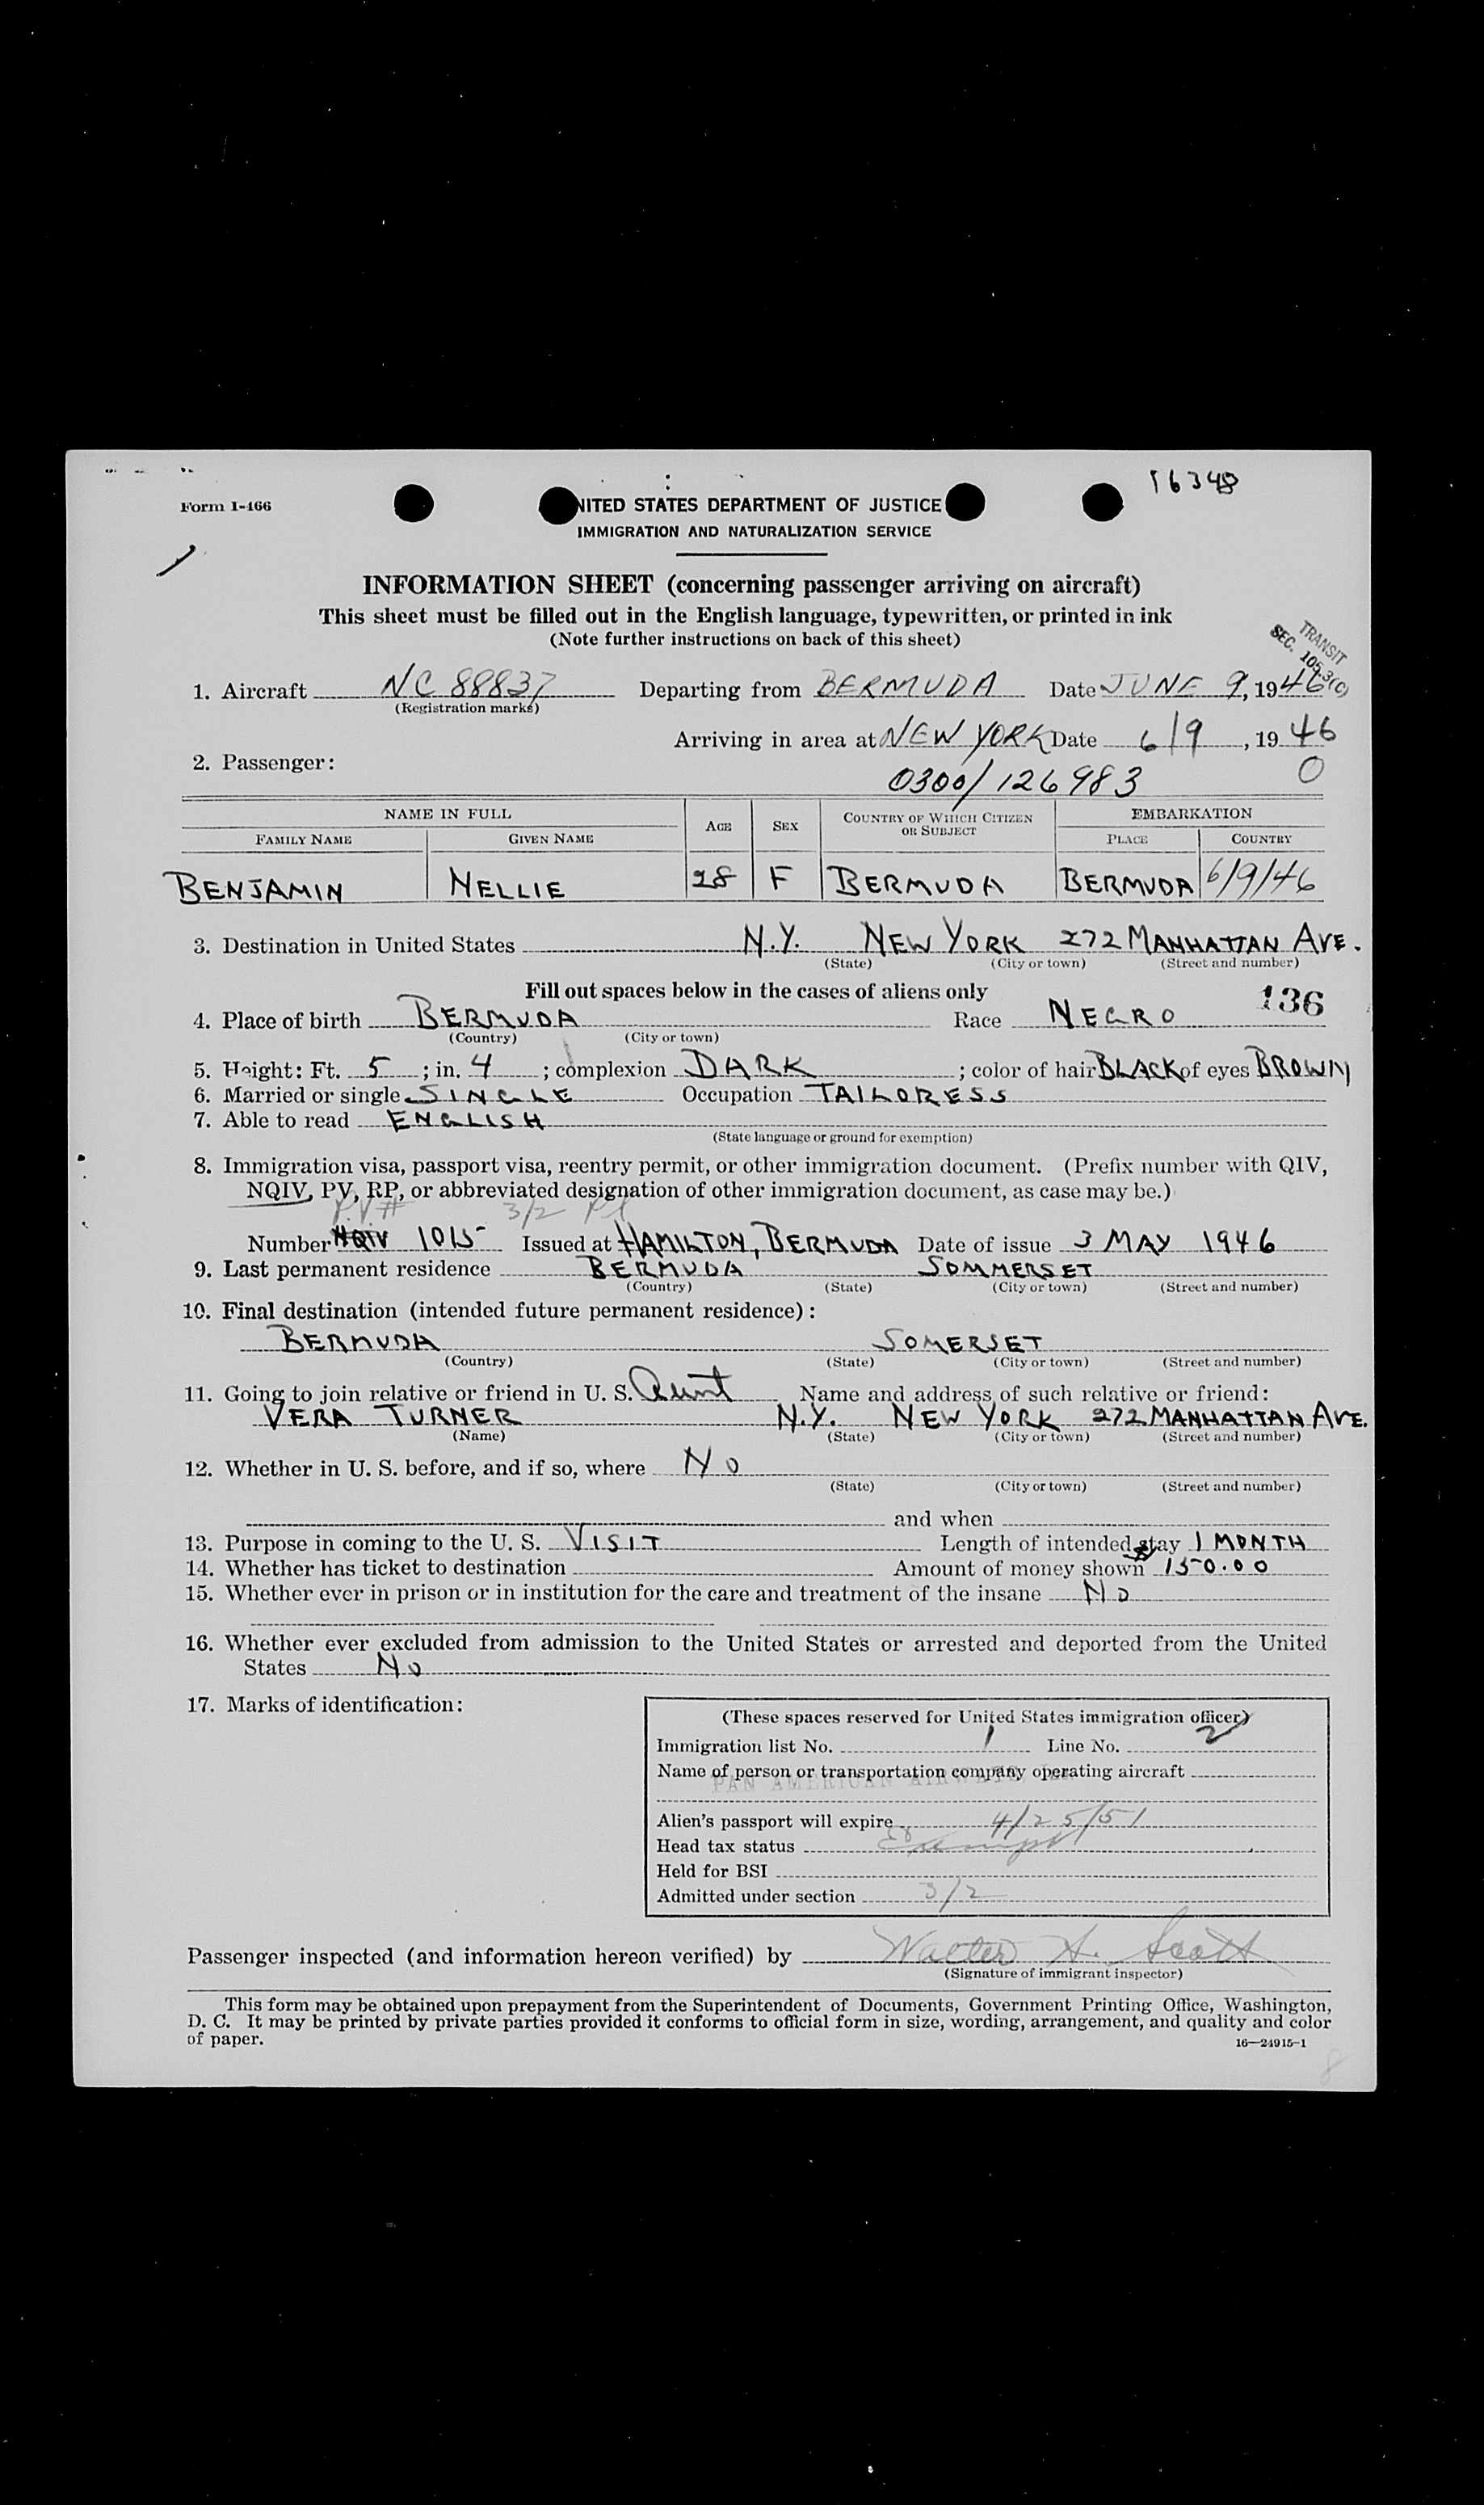 16348
Form I-466
UNITED STATES DEPARTMENT OF JUSTICE
IMMIGRATION AND NATURALIZATION SERVICE
INFORMATION SHEET (concerning passenger arriving on aircraft)
This sheet must be filled out in the English language, typewritten, or printed in ink
(Note further instructions on back of this sheet)
TRANSIT
SEC. 105.3(c)
1. Aircraft NC 88837 Departing from BERMUDA Date JUNE 9, 1946
(Registration marks)
Arriving in area at NEW YORK Date 6/9, 1946
2. Passenger:
0300/126983 0
NAME IN FULL AGE SEX COUNTRY OF WHICH CITIZEN OR SUBJECT EMBARKATION
FAMILY NAME GIVEN NAME PLACE COUNTRY
BENJAMIN NELLIE 28 F BERMUDA BERMUDA 6/9/46
3. Destination in United States N.Y. NEW YORK 272 MANHATTAN AVE.
(State) (City or town) (Street and number)
Fill out spaces below in the cases of aliens only
136
4. Place of birth BERMUDA Race NEGRO
(Country) (City or town)
5. Height: Ft. 5; in. 4; complexion DARK; color of hair BLACK of eyes BROWN
6. Married or single SINGLE Occupation TAILORESS
7. Able to read ENGLISH
(State language or ground for exemption)
8. Immigration visa, passport visa, reentry permit, or other immigration document. (Prefix number with QIV,
NQIV, PV, RP, or abbreviated designation of other immigration document, as case may be.)
P.V # 3/2
Number NQIV 1015 Issued at HAMILTON, BERMUDA Date of issue 3 MAY 1946
9. Last permanent residence BERMUDA SOMMERSET
(Country) (State) (City or town) (Street and number)
10. Final destination (intended future permanent residence):
BERMUDA SOMERSET
(Country) (State) (City or town) (Street and number)
11. Going to join relative or friend in U. S. Aunt Name and address of such relative or friend:
VERA TURNER N.Y. NEW YORK 272 MANHATTAN AVE.
(Name) (State) (City or town) (Street and number)
12. Whether in U. S. before, and if so, where NO
(State) (City or town) (Street and number)
and when
13. Purpose in coming to the U. S. VISIT Length of intended stay 1 MONTH
14. Whether has ticket to destination Amount of money shown 150.00
15. Whether ever in prison or in institution for the care and treatment of the insane NO
16. Whether ever excluded from admission to the United States or arrested and deported from the United
States NO
17. Marks of identification:
(These spaces reserved for United States immigration officer)
Immigration list No. 1 Line No. 2
Name of person or transportation company operating aircraft
PAN AMERICAN AIRWAYS,
Alien's passport will expire 4/25/51
Head tax status Exempt
Held for BSI
Admitted under section 3/2
Passenger inspected (and information hereon verified) by Walter A. Scott
(Signature of immigrant inspector)
This form may be obtained upon prepayment from the Superintendent of Documents, Government Printing Office, Washington,
D. C. It may be printed by private parties provided it conforms to official form in size, wording, arrangement, and quality and color
of paper.
16—24915-1
8